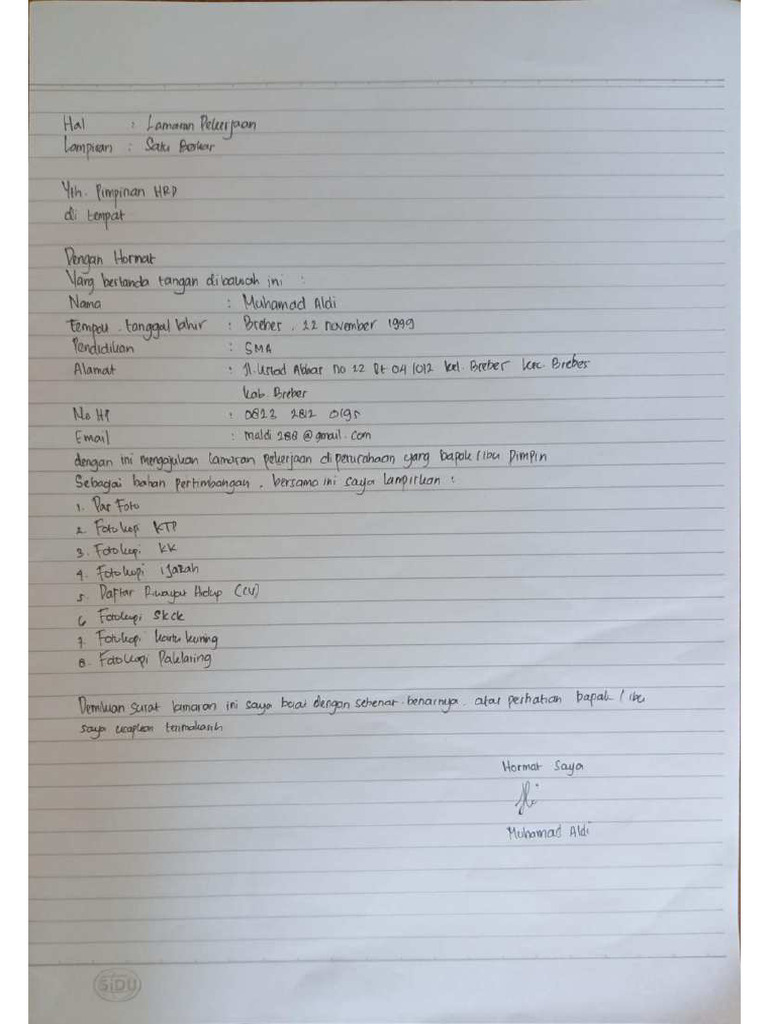 Hal : Lamaran Pekerjaan
Lampiran : Satu Berkar
Yth. Pimpinan HRD
di tempat
Dengan Hormat
Yang bertanda tangan dibawah ini :
Nama : Muhamad Aldi
Tempat, tanggal lahir : Breber, 22 november 1999
Pendidikan : SMA
Alamat : Jl. Ustad Abbar no 22 Rt 04/012 kel. Breber kec. Brebes
kab. Breber
No HP : 0823 2812 0195
Email : maldi288@gmail.com
dengan ini mengajukan lamaran pekerjaan diperusahaan yang bapak/ibu Pimpin
Sebagai bahan pertimbangan, bersama ini saya lampirkan :
1. Par Foto
2. Fotokopi KTP
3. Fotokopi KK
4. Fotokopi ijazah
5. Daftar Riwayat Hidup (CV)
6 Fotokopi Skck
7. Fotokopi kartu kuning
8. Fotokopi Paklaring
Demikian surat lamaran ini saya buat dengan sebenar-benarnya. atas perhatian bapak/ibu
saya ucapkan terimakasih
Hormat Saya
Muhamad Aldi
SiDU